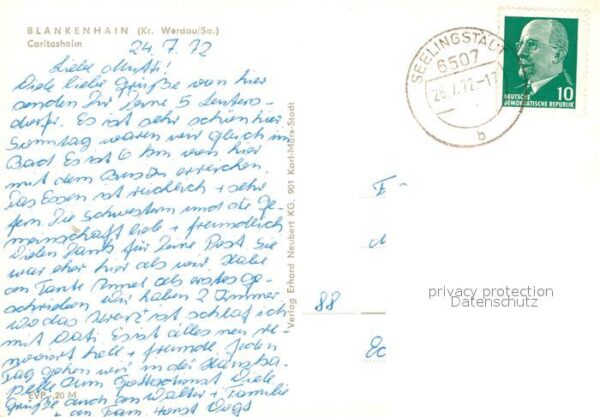 BLANKENHAIN (Kr. Werdau/Sa.)
Caritasheim
24.7.72
Liebe Mutti!
Viele liebe Grüße von hier
senden Dir Deine 5 Leuters-
dorfer. Es ist sehr schön hier
Sonntag waren wir gleich im
Bad Es ist 6 km von hier
mit dem Bus zu erreichen.
Das Essen ist reichlich + sehr
fein. Die Schwestern und die Ge-
meinschaft lieb + freundlich
Vielen Dank für Deine Post Sie
war eher hier als wir Habe
an Tante als erstes ge-
schrieben Wir haben 2 Zimmer.
wo das ist schlaf ich
mit Dati Es ist alles neu re
noviert hell + freundl. Jeden
Tag gehen wir in der Hauska-
pelle zum Gottesdienst Viele
Grüße auch an Walter + Familie
+ an Fam. Horst
EVP -.20 M
Verlag Erhard Neubert KG, 901 Karl-Marx-Stadt
SEELINGSTÄDT
6507
25.7.72-17
b
10
DEUTSCHE
DEMOKRATISCHE REPUBLIK
88
privacy protection
Datenschutz